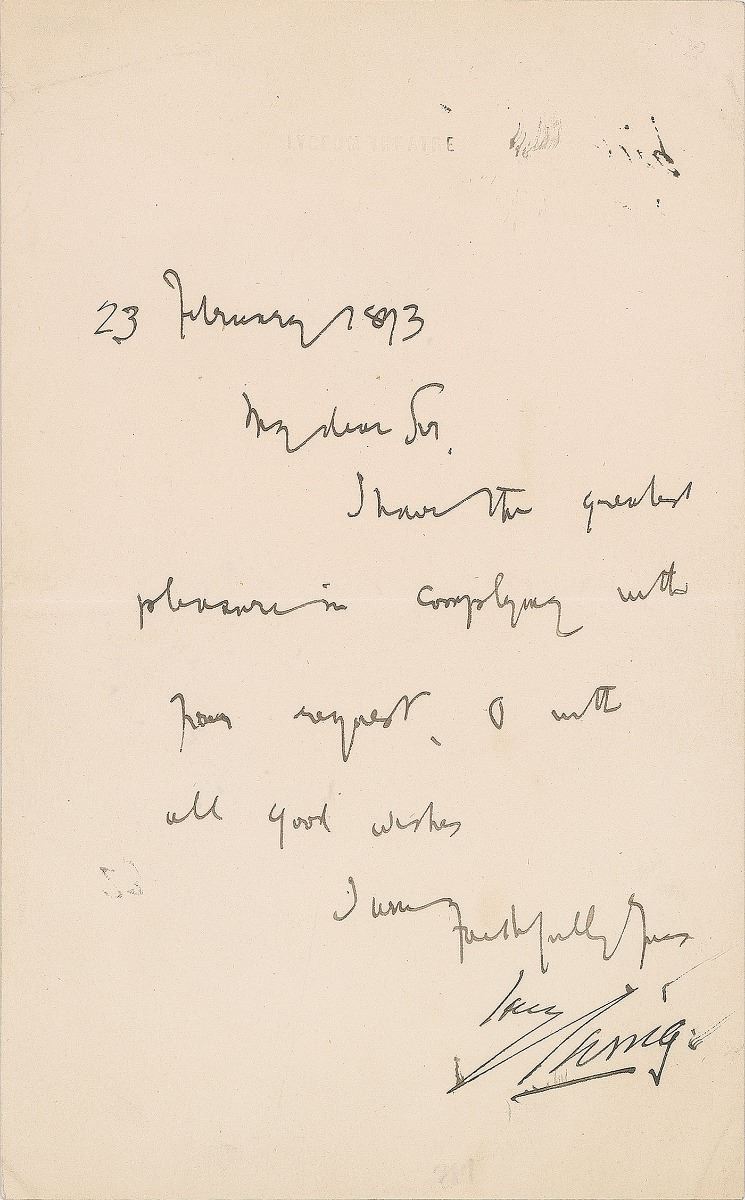 LYCEUM THEATRE
23 February 1893
My dear Sir,
I have the greatest
pleasure in complying with
your request, & with
all good wishes
I am
Faithfully Yours
Irving